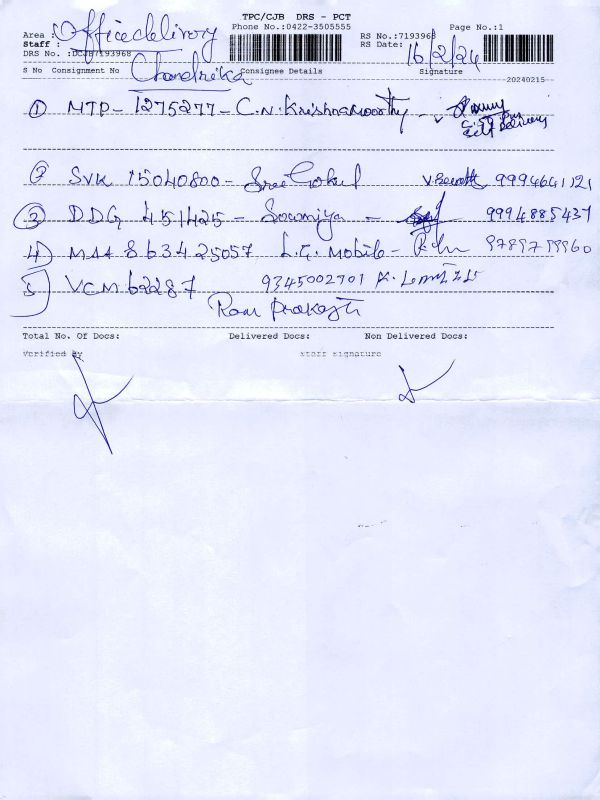 TPC/CJB DRS - PCT
Area : Office delivery Phone No.:0422-3505555 RS No.:7193968 Page No.:1
Staff : RS Date: 16/2/24
DRS No. :DCJB7193968
S No Consignment No Chandrika Consignee Details Signature 20240215
1 MTP- 1275277- C.N. Krishnamoorthy
Self Delivery
2 SVK 15040800- Sree Gokul 9994641121
3 DDG 451425- Sowmiya - 9994885437
4) MAA 863425057 L.G. Mobile-
5 VCM 62287 9345002701 K.
Ram Prakash
Total No. Of Docs: Delivered Docs: Non Delivered Docs:
Verified By Staff Signature